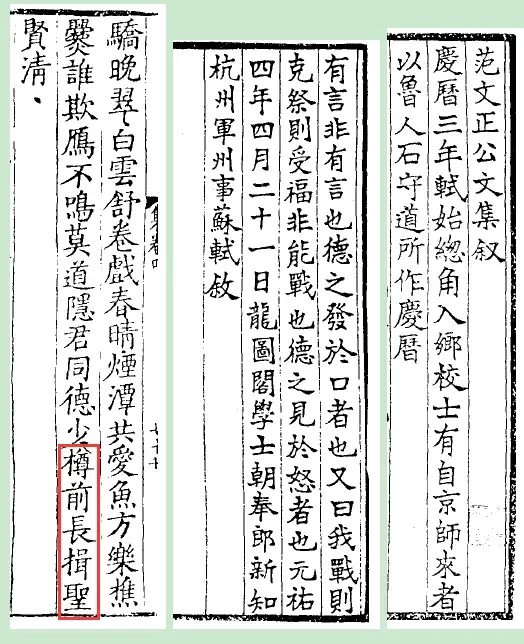 范文正公文集叙
慶曆三年軾始緫角入鄉校士有自京師來者
以魯人石守道所作慶曆
有言非有言也德之發於口者也又曰我戰則
克祭則受福非能戰也德之見於怒者也元祐
四年四月二十一日龍圖閣學士朝奉郎新知
杭州軍州事蘇軾敘
驕晚翠白雲舒卷戲春晴煙潭共愛魚方樂樵
爨誰欺鴈不鳴莫道隱君同德少樽前長揖聖
賢清、